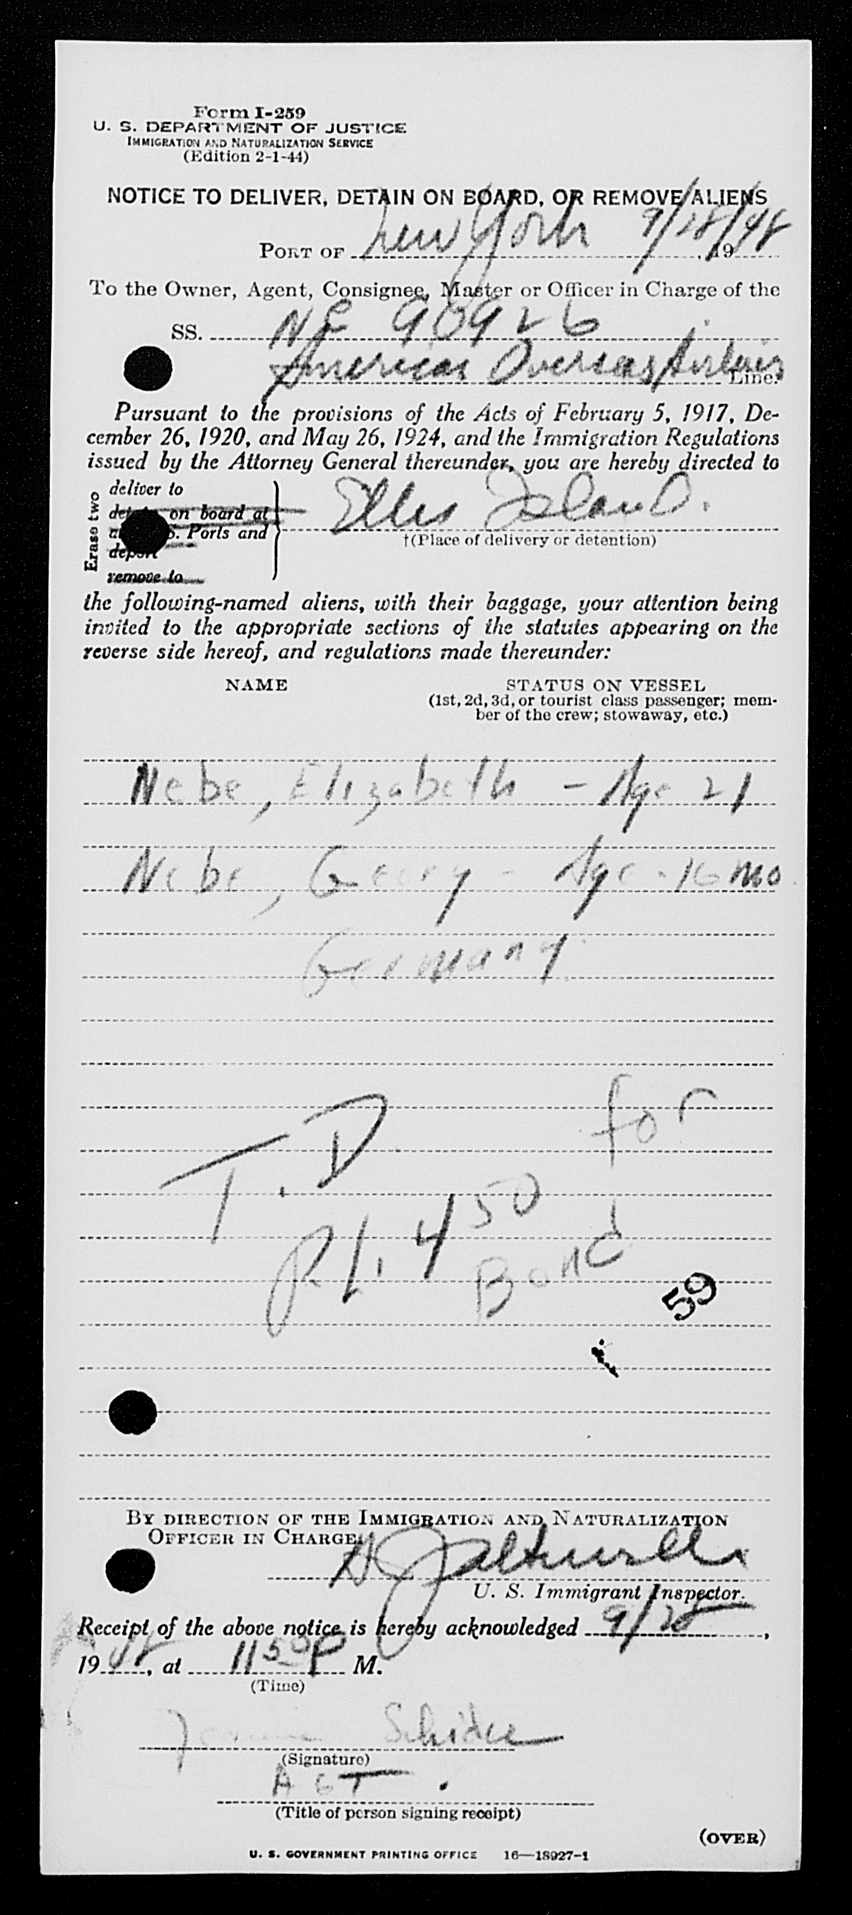 Form I-259
U. S. DEPARTMENT OF JUSTICE
IMMIGRATION AND NATURALIZATION SERVICE
(Edition 2-1-44)
NOTICE TO DELIVER, DETAIN ON BOARD, OR REMOVE ALIENS
PORT OF New York 9/28/48, 19
To the Owner, Agent, Consignee, Master or Officer in Charge of the
SS. NC 90926
American Overseas Airlines Line.
Pursuant to the provisions of the Acts of February 5, 1917, De-
cember 26, 1920, and May 26, 1924, and the Immigration Regulations
issued by the Attorney General thereunder, you are hereby directed to
Erase two
deliver to
on board at
Ports and
deport
remove to
Ellis Island.
†(Place of delivery or detention)
the following-named aliens, with their baggage, your attention being
invited to the appropriate sections of the statutes appearing on the
reverse side hereof, and regulations made thereunder:
NAME STATUS ON VESSEL
(1st, 2d, 3d, or tourist class passenger; mem-
ber of the crew; stowaway, etc.)
Nebe, Elizabeth - Age 21
Nebe, Georg - Age - 16 mo
Germany
T. D for
450
Bond
59
BY DIRECTION OF THE IMMIGRATION AND NATURALIZATION
OFFICER IN CHARGE.
U. S. Immigrant Inspector.
Receipt of the above notice is hereby acknowledged 9/28,
1948, at 1150 P M.
(Time)
(Signature)
AGT.
(Title of person signing receipt)
(OVER)
U. S. GOVERNMENT PRINTING OFFICE 16—18927-1